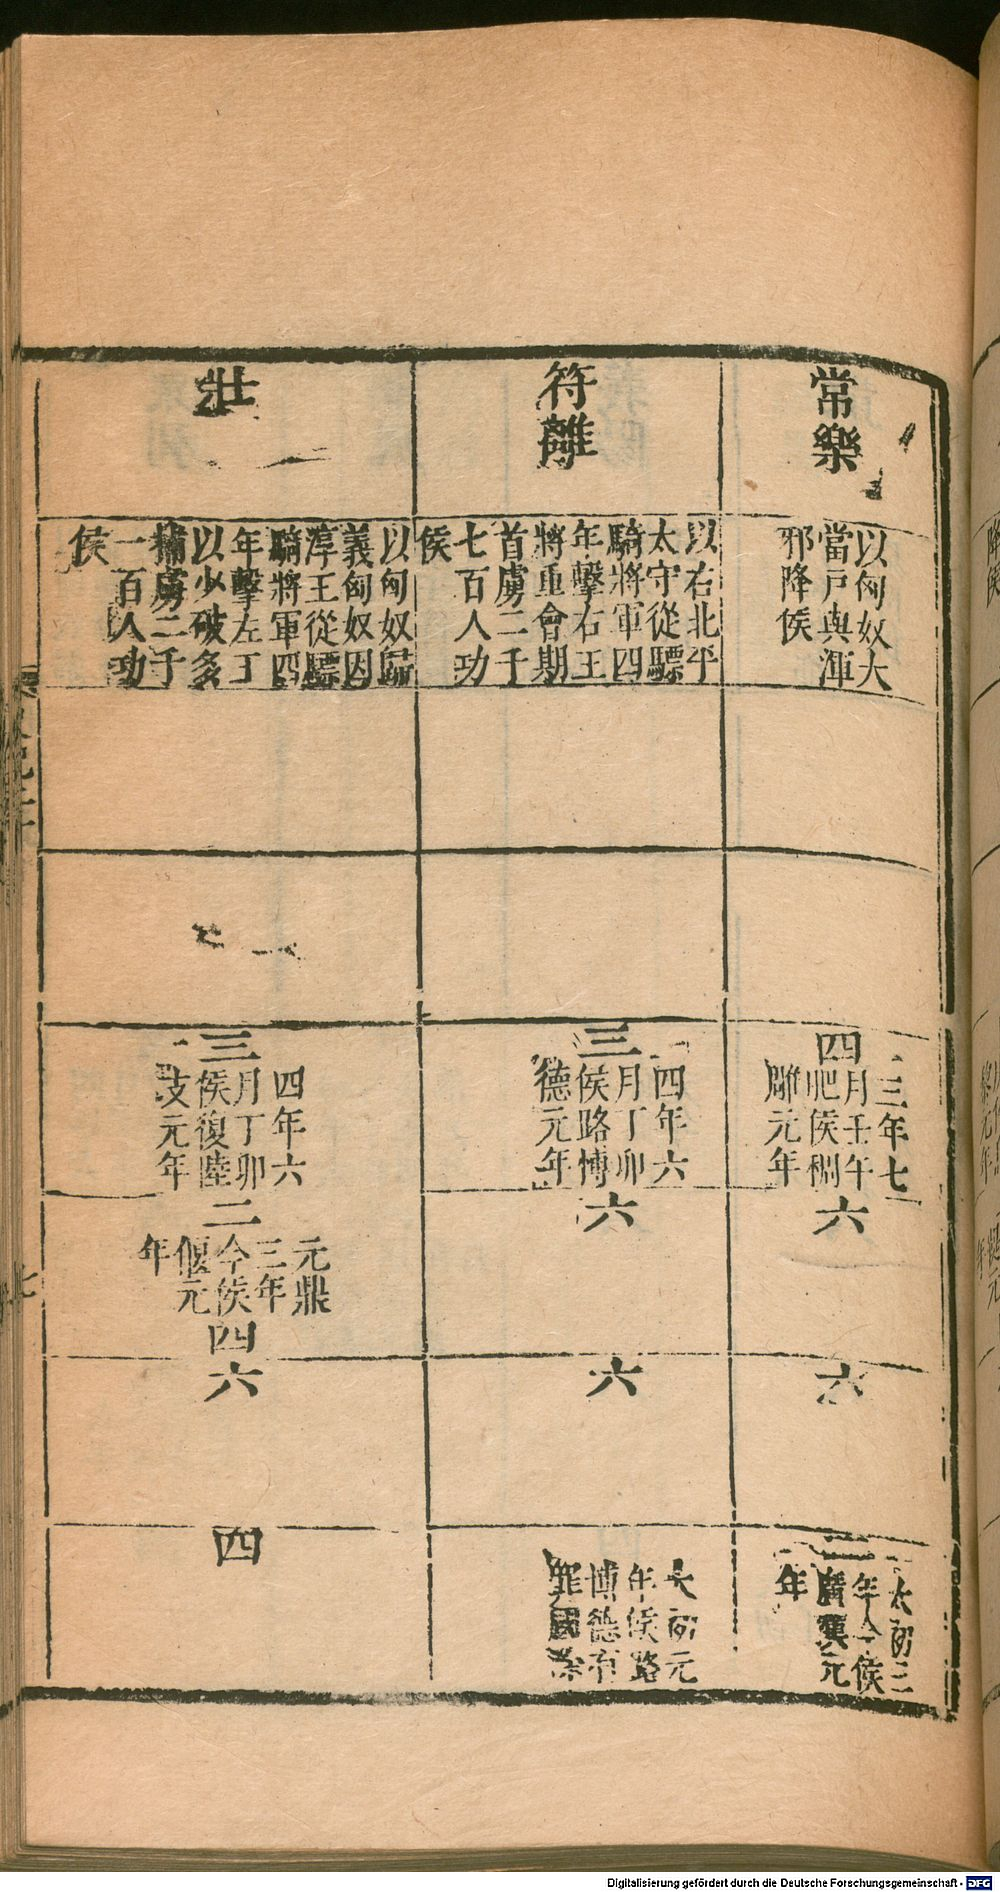 常樂
以匈奴大
當戶與渾
邪降侯
三年七
月壬午
肥侯稠
雕元年
四
六
六
太初三
年今侯
廣漢元
年
二
符離
以右北平
太守從驃
騎將軍四
年擊右王
將重會期
首虜二千
七百人功
侯
三
四年六
月丁卯
侯路博
德元年
六
六
太初元
年侯路
博德有
罪國除
壯
以匈奴歸
義匈奴因
淳王從驃
騎將軍四
年擊左丁
以少破多
捕虜二千
一百人功
侯
三
四年六
月丁卯
侯復陸
支元年
二
元鼎
三年
今侯
偃元
年
四
六
四
七
Digitalisierung gefördert durch die Deutsche Forschungsgemeinschaft - DFG